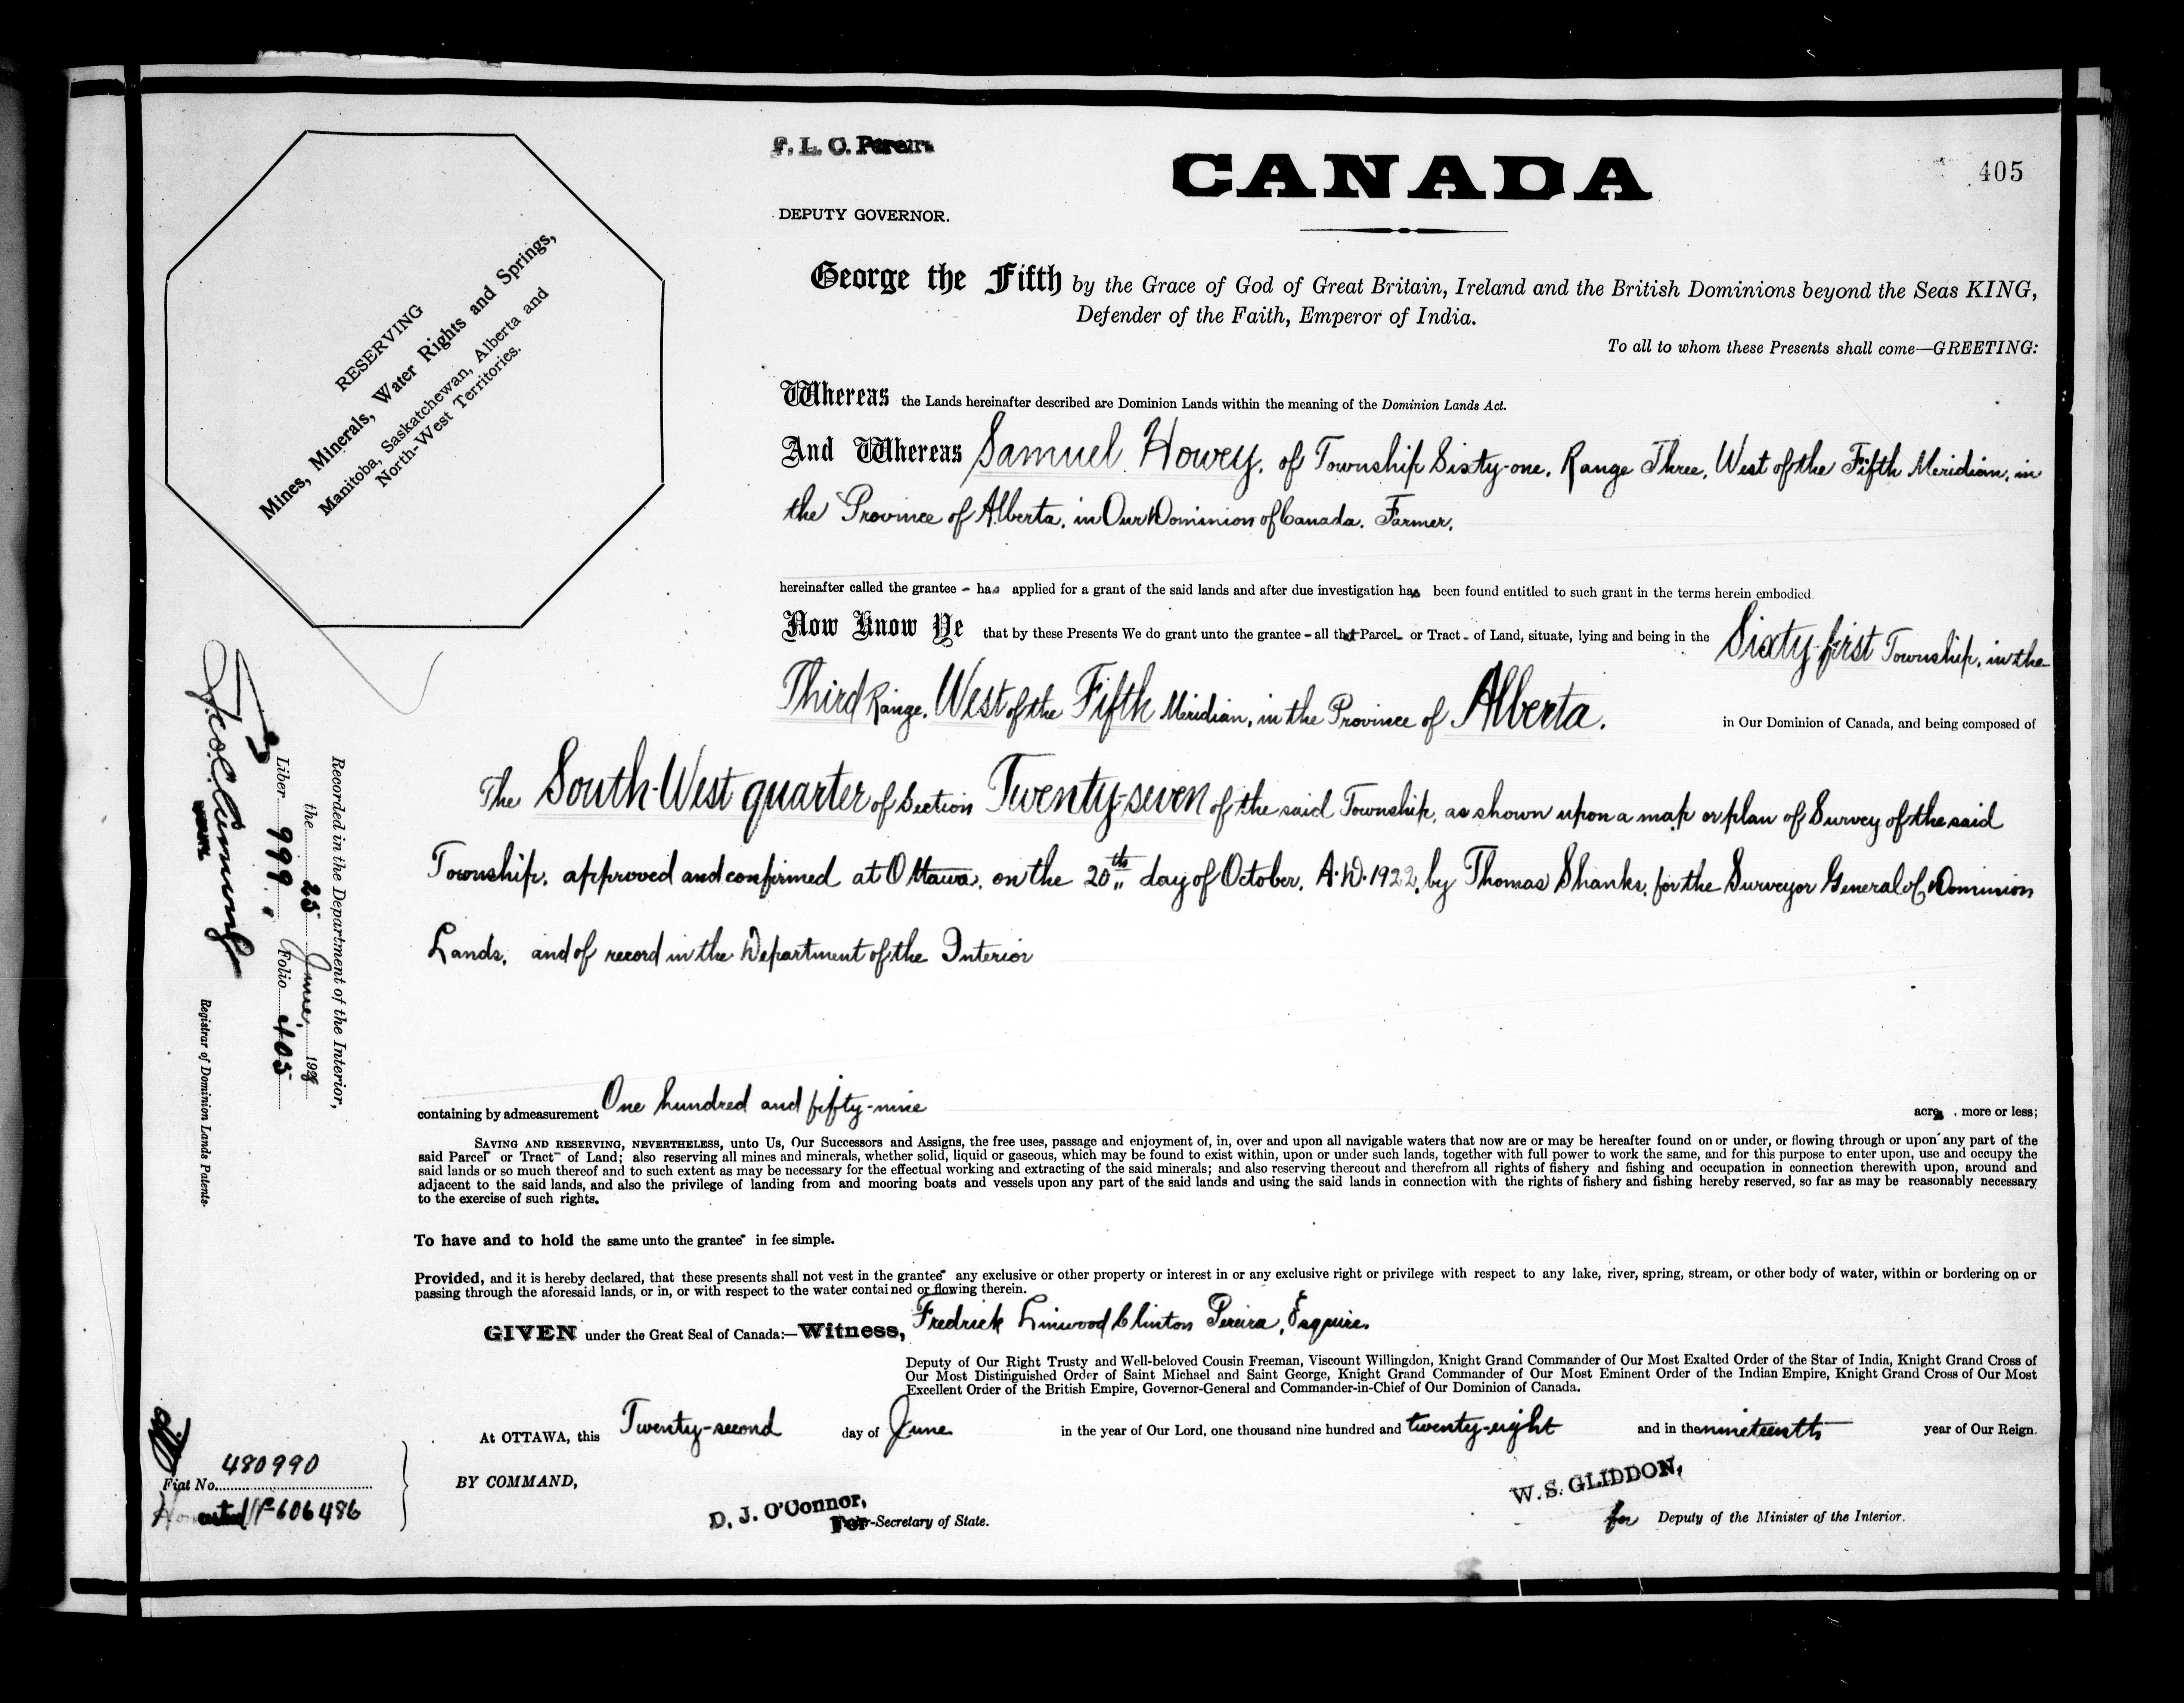 F. L. C. Pereira
DEPUTY GOVERNOR.
CANADA
405
RESERVING
Mines, Minerals, Water Rights and Springs,
Manitoba, Saskatchewan, Alberta and
North-West Territories.
George the Fifth by the Grace of God of Great Britain, Ireland and the British Dominions beyond the Seas KING,
Defender of the Faith, Emperor of India.
To all to whom these Presents shall come—GREETING:
Whereas the Lands hereinafter described are Dominion Lands within the meaning of the Dominion Lands Act.
And Whereas Samuel Howey, of Township Sixty-one, Range Three, West of the Fifth Meridian, in
the Province of Alberta, in Our Dominion of Canada, Farmer,
hereinafter called the grantee - has applied for a grant of the said lands and after due investigation has been found entitled to such grant in the terms herein embodied
Now Know Ye that by these Presents We do grant unto the grantee - all that Parcel or Tract - of Land, situate, lying and being in the Sixty-first Township, in the
Third Range, West of the Fifth Meridian, in the Province of Alberta. in Our Dominion of Canada, and being composed of
The South-West quarter of Section Twenty-seven of the said Township, as shown upon a map or plan of Survey of the said
Township, approved and confirmed at Ottawa, on the 20th day of October, A.D. 1922, by Thomas Shanks, for the Surveyor General of Dominion
Lands, and of record in the Department of the Interior
containing by admeasurement One hundred and fifty-nine acres, more or less;
SAVING AND RESERVING, NEVERTHELESS, unto Us, Our Successors and Assigns, the free uses, passage and enjoyment of, in, over and upon all navigable waters that now are or may be hereafter found on or under, or flowing through or upon any part of the
said Parcel or Tract of Land; also reserving all mines and minerals, whether solid, liquid or gaseous, which may be found to exist within, upon or under such lands, together with full power to work the same, and for this purpose to enter upon, use and occupy the
said lands or so much thereof and to such extent as may be necessary for the effectual working and extracting of the said minerals; and also reserving thereout and therefrom all rights of fishery and fishing and occupation in connection therewith upon, around and
adjacent to the said lands, and also the privilege of landing from and mooring boats and vessels upon any part of the said lands and using the said lands in connection with the rights of fishery and fishing hereby reserved, so far as may be reasonably necessary
to the exercise of such rights.
To have and to hold the same unto the grantee in fee simple.
Provided, and it is hereby declared, that these presents shall not vest in the grantee any exclusive or other property or interest in or any exclusive right or privilege with respect to any lake, river, spring, stream, or other body of water, within or bordering on or
passing through the aforesaid lands, or in, or with respect to the water contained or flowing therein.
GIVEN under the Great Seal of Canada:—Witness, Fredrick Linwood Clinton Pereira, Esquire.
Deputy of Our Right Trusty and Well-beloved Cousin Freeman, Viscount Willingdon, Knight Grand Commander of Our Most Exalted Order of the Star of India, Knight Grand Cross of
Our Most Distinguished Order of Saint Michael and Saint George, Knight Grand Commander of Our Most Eminent Order of the Indian Empire, Knight Grand Cross of Our Most
Excellent Order of the British Empire, Governor-General and Commander-in-Chief of Our Dominion of Canada.
At OTTAWA, this Twenty-second day of June in the year of Our Lord, one thousand nine hundred and twenty-eight and in the nineteenth year of Our Reign.
BY COMMAND,
D. J. O'Connor,
For -Secretary of State.
W. S. GLIDDON,
for Deputy of the Minister of the Interior.
Recorded in the Department of the Interior,
the 25 June, 1928
Liber 999, Folio 405
Registrar of Dominion Lands Patents.
Fiat No. 480990
606486